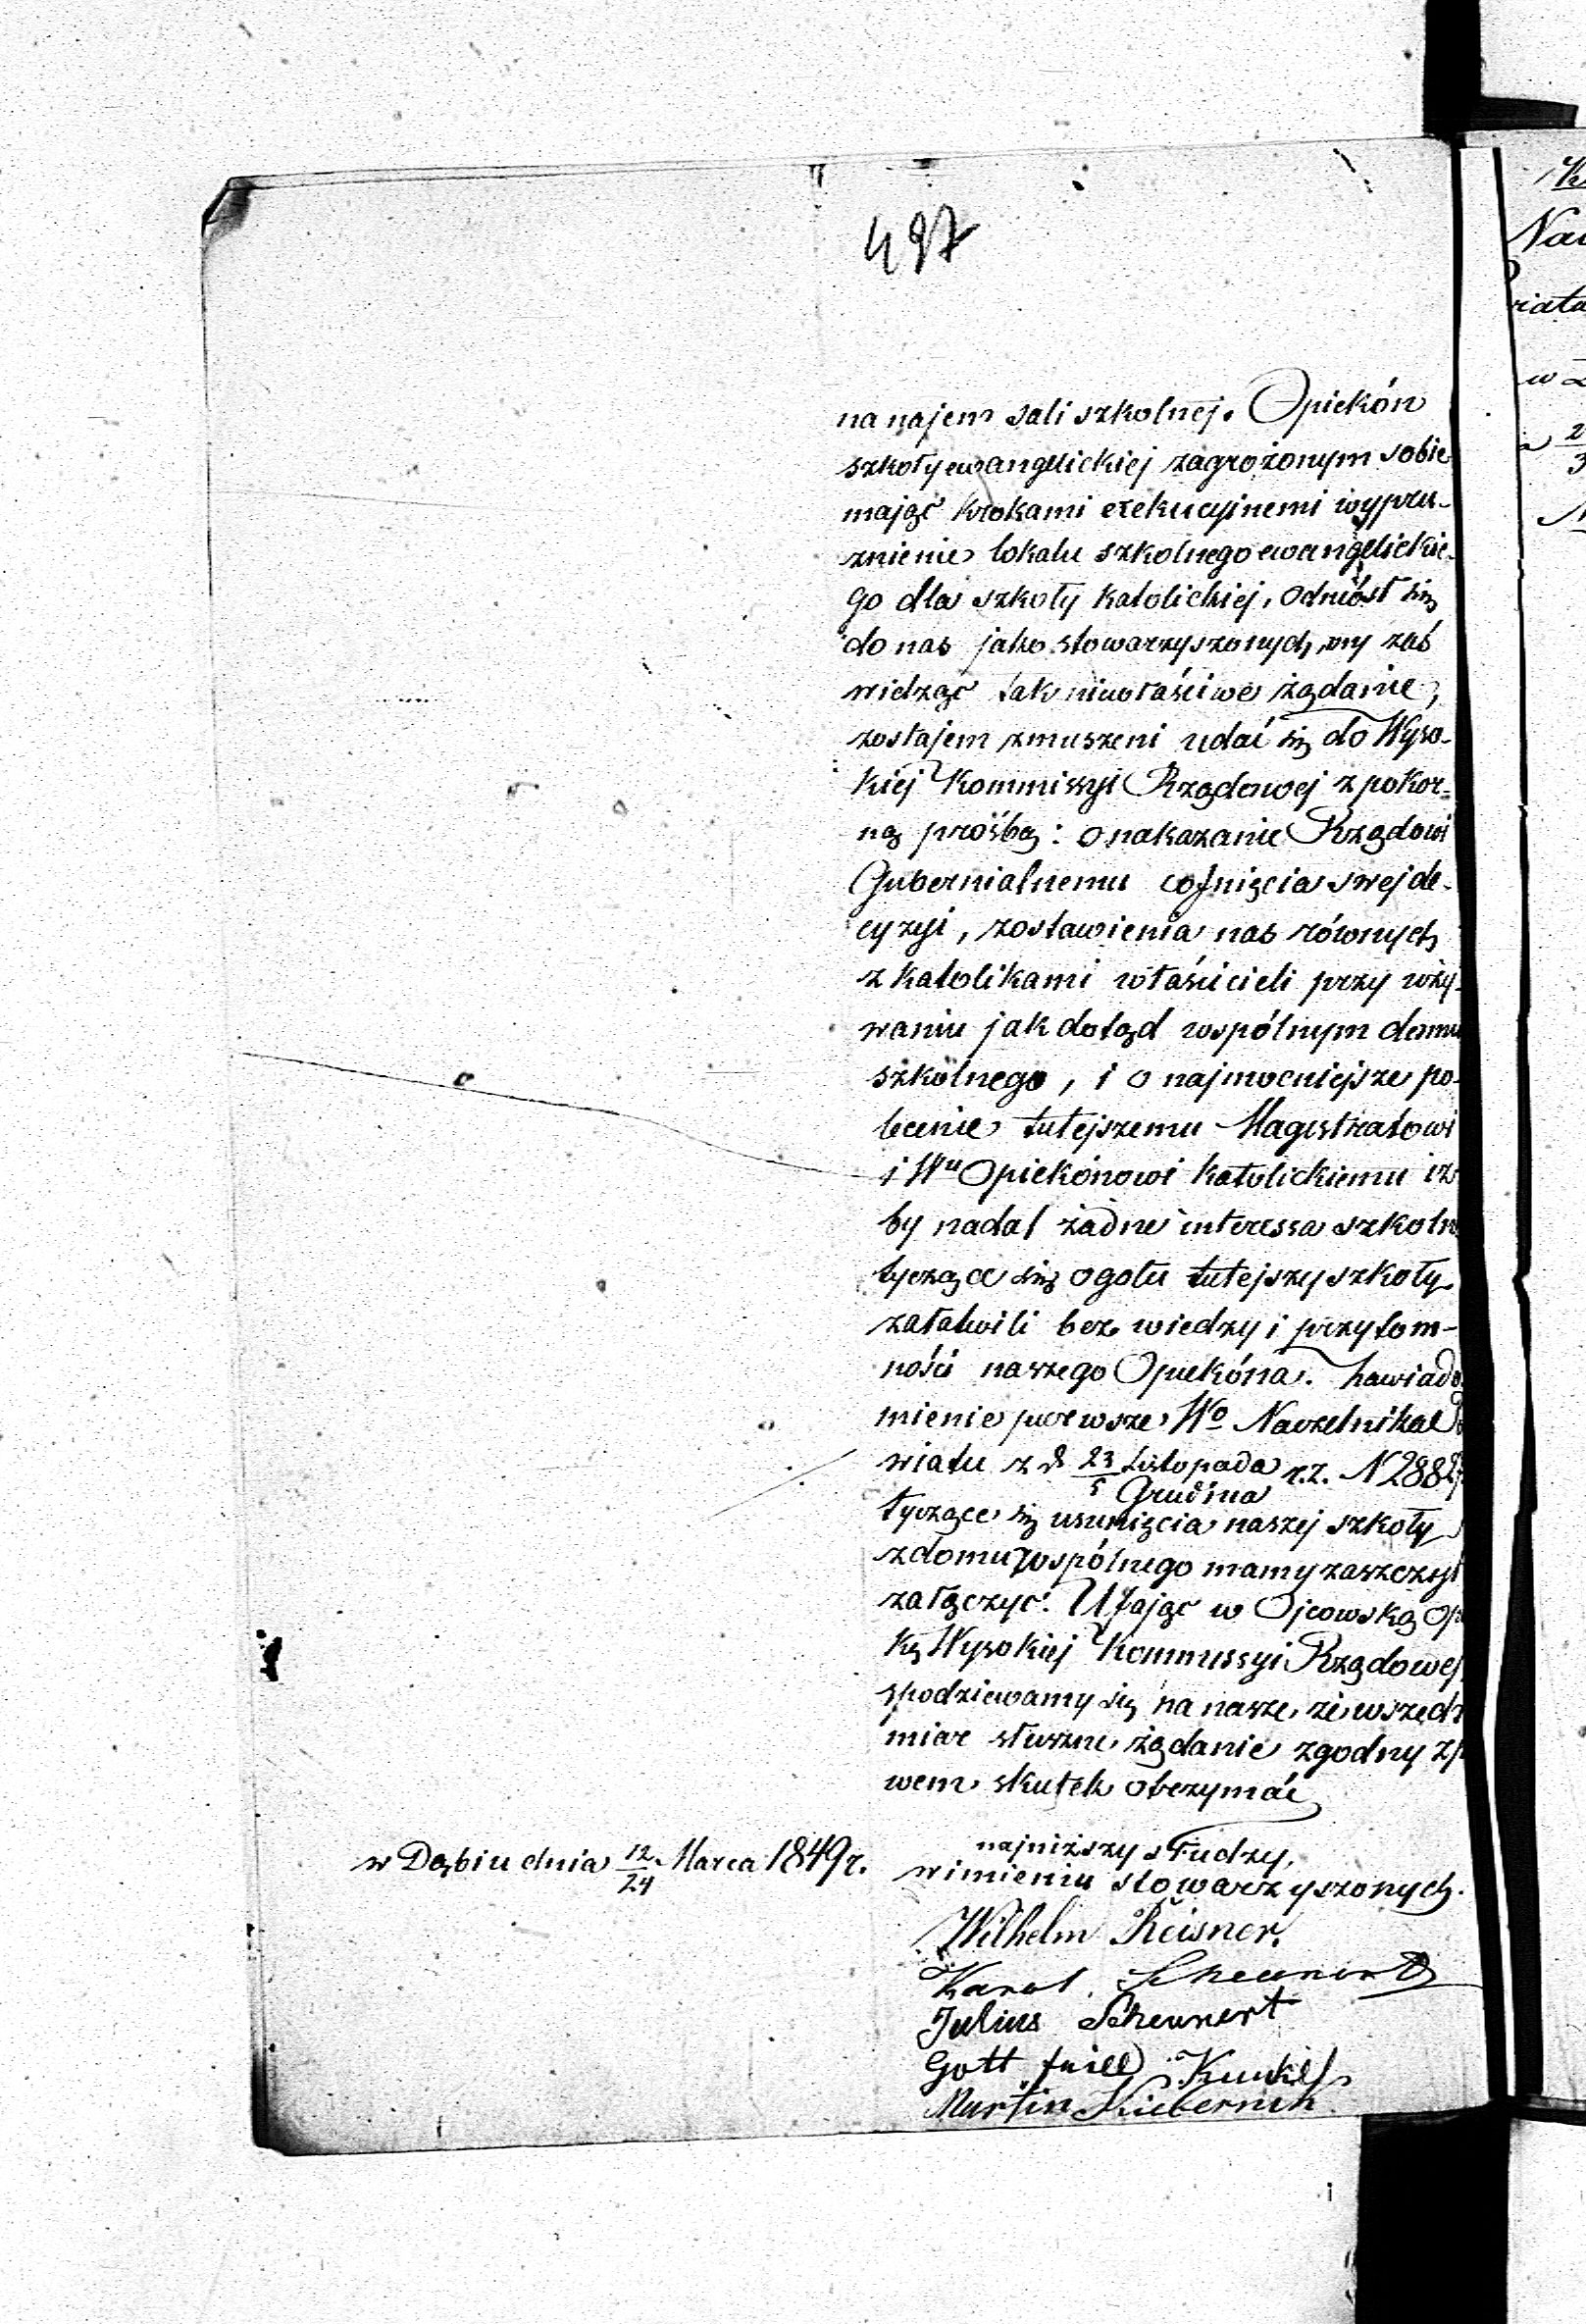 497
na najem sali szkolnej. Opiekón
szkoły ewangelickiej zagrożonym sobie
mając krokami exekucyjnemi wypru-
znienie lokalu szkolnego ewangelickie-
go dla szkoły katolickiej, odniósł się
do nas jako stowarzyszonych, my zaś
widząc tak niewłaściwe żądanie,
zostajem zmuszeni udać się do Wyso-
kiej Kommissyi Rządowej z pokor-
ną prośbą: o nakazanie Rządowi
Gubernialnemu cofnięcia swej de-
cyzyi, zostawienia nas równych
z katolikami właścicieli przy uży-
waniu jak dotąd wspólnym domu
szkolnego, i o najmocniejsze po-
lecenie tutejszemu Magistratowi
i Wu Opiekónowi katolickiemu iż
by nadal żadne interessa szkolne
tyczące się ogołu tutejszy szkoły
załatwili bez wiedzy i przytom-
ności naszego Opiekóna. Zawiado
mienie pierwsze Wo Naczelnika
wiatu z d 23/5 Listopada/Grudnia r.z. N 2882
tyczące się usunięcia naszej szkoły
z domu wspólnego mamy zaszczyt
załączyć. Ufając w Ojcowską Op
kę Wysokiej Kommissyi Rządowej
spodziewamy się na nasze ze wszech
miar słuszne żądanie zgodny z p
wem skutek otrzymać
najniższy słudzy,
w imieniu stowarzyszonych.
w Dąbiu dnia 12/24 Marca 1849 r.
Wilhelm Reisner.
Karol Scheunert
Julius Scheunert
Gott fried Kunkel
Martin
K
Na
w